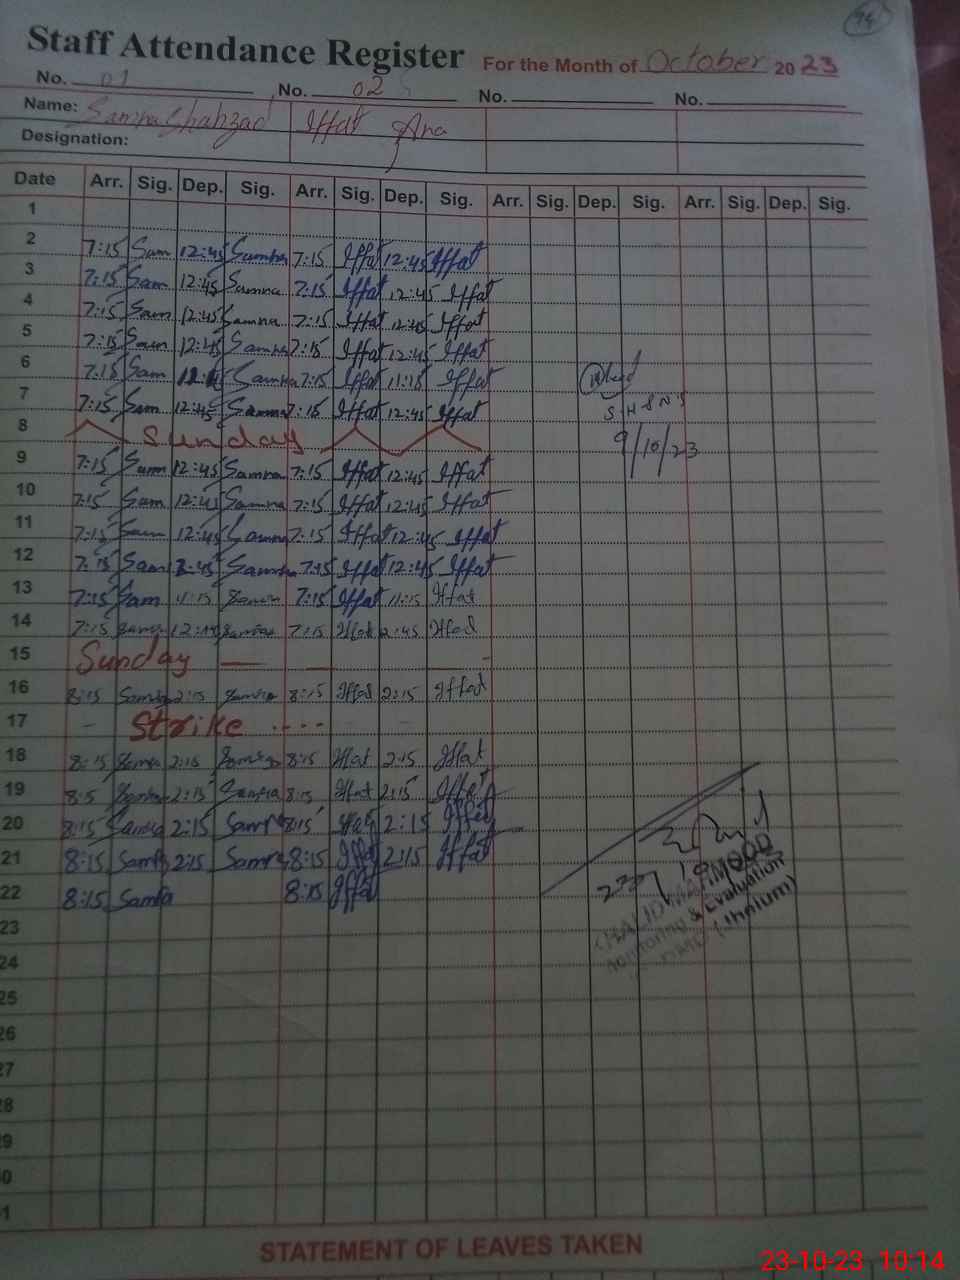 94
Staff Attendance Register For the Month of October 2023
No. 01 No. 02 No. No.
Name: Samra Shahzad Iffat Ara
Designation:
Date Arr. Sig. Dep. Sig. Arr. Sig. Dep. Sig. Arr. Sig. Dep. Sig. Arr. Sig. Dep. Sig.
1
2 7:15 Sam 12:45 Samra 7:15 Iffat 12:45 Iffat
3 7:15 Sam 12:45 Samra 7:15 Iffat 12:45 Iffat
4 7:15 Sam 12:45 Samra 7:15 Iffat 12:45 Iffat
5 7:15 Sam 12:45 Samra 7:15 Iffat 12:45 Iffat
6 7:15 Sam Samra 7:15 Iffat 11:15 Iffat
7 7:15 Sam 12:45 Samra 7:15 Iffat 12:45 Iffat
8 Sunday
9 7:15 Sam 12:45 Samra 7:15 Iffat 12:45 Iffat
10 7:15 Sam 12:45 Samra 7:15 Iffat 12:45 Iffat
11 7:15 Sam 12:45 Samra 7:15 Iffat 12:45 Iffat
12 7:15 Sam 2:45 Samra 7:15 Iffat 12:45 Iffat
13 7:15 Sam 11:15 Samra 7:15 Iffat 11:15 Iffat
14 7:15 Samra Samra 7:15 Iffat 2:45 Iffat
15 Sunday
16 8:15 Samra 2:15 Samra 8:15 Iffat 2:15 Iffat
17 Strike
18 8:15 Samra 2:15 Samra 8:15 Iffat 2:15 Iffat
19 8:5 Samra 2:15 Samra 8:15 Iffat 2:15 Iffat
20 8:15 Samra 2:15 Samra 8:15 Iffat 2:15 Iffat
21 8:15 Samra 2:15 Samra 8:15 Iffat 2:15 Iffat
22 8:15 Samra 8:15 Iffat
23
24
25
26
27
28
29
30
31
S.H.S.N.S
9/10/23
KHALID MEHMOOD
Monitoring & Evaluation
(Jhelum)
STATEMENT OF LEAVES TAKEN
23-10-23 10:14